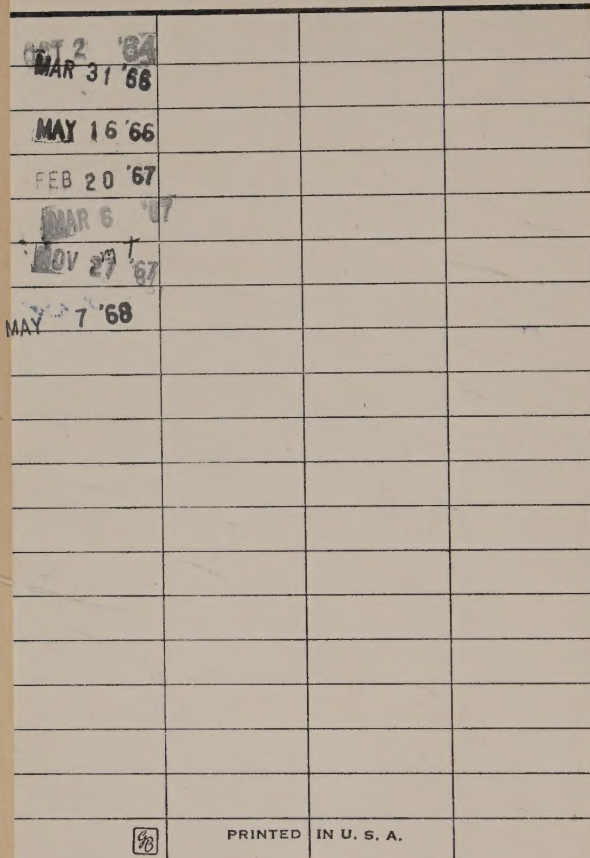 OCT 2 '64
MAR 31 '66
MAY 16 '66
FEB 20 '67
MAR 6 '67
NOV 27 '67
MAY 7 '68
GB PRINTED IN U. S. A.